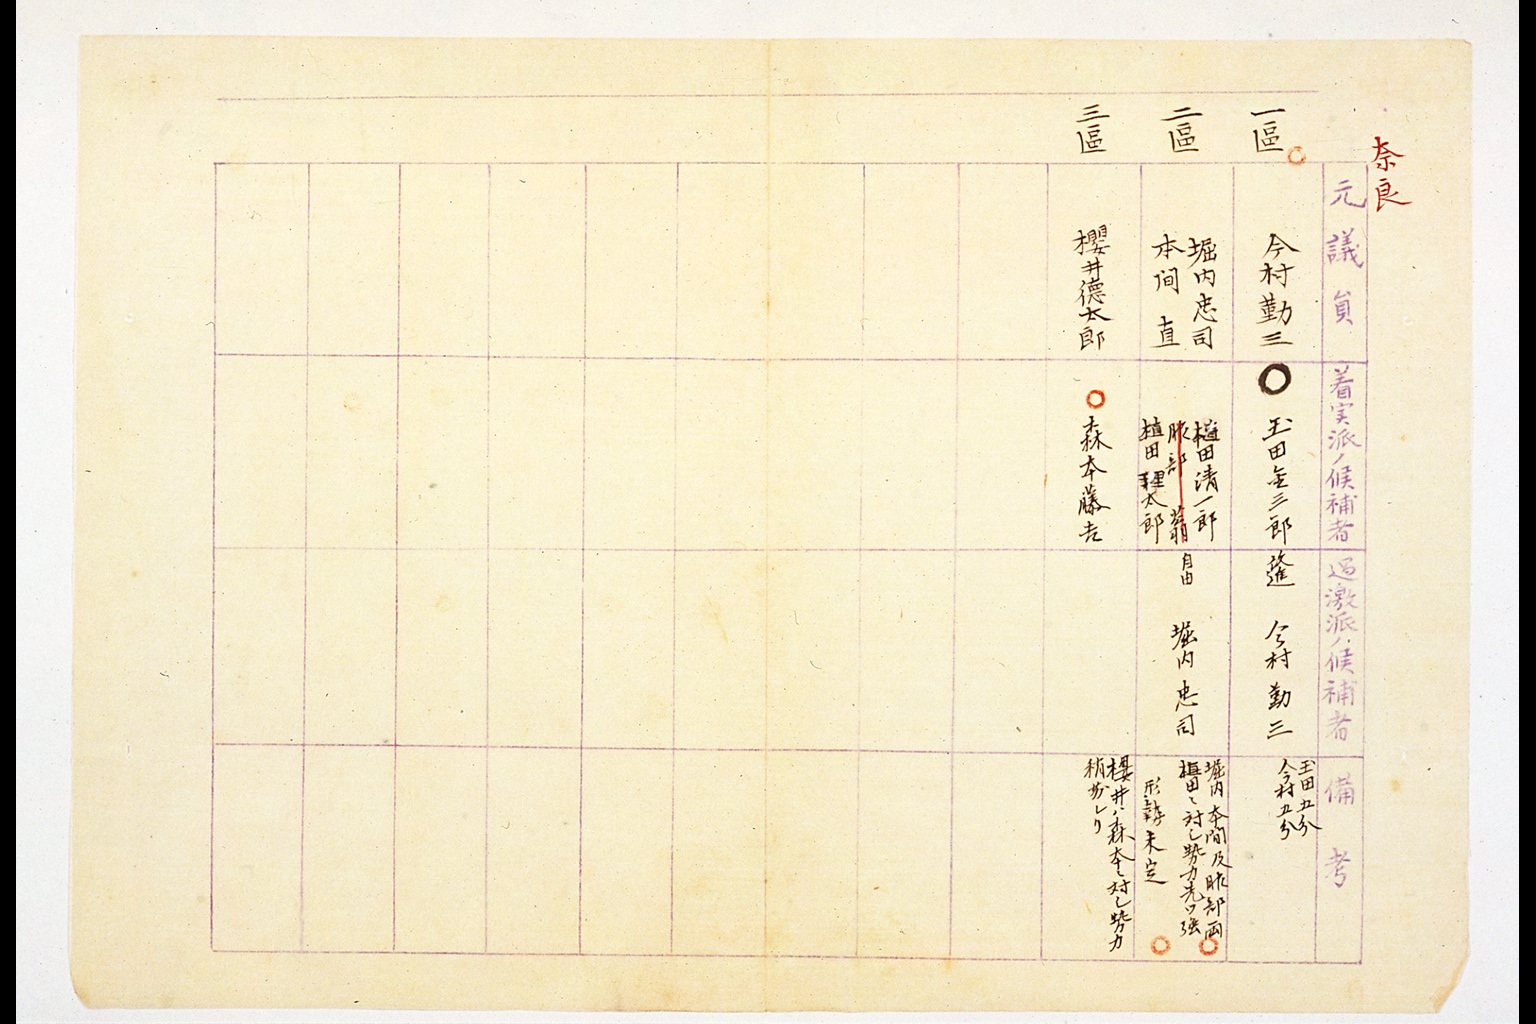 奈良
元議員
着実派ノ候補者
過激派ノ候補者
備考
一區
今村勤三
玉田金三郎
今村勤三
玉田五分
今村五分
二區
堀内忠司
本間直
植田清一郎
服部蓊
植田理太郎
自由
堀内忠司
堀内本間及服部両
植田ニ対シ勢力先ツ強
形勢未定
三區
櫻井德太郎
森本藤吉
櫻井ハ森本ニ対シ勢力
稍劣レリ